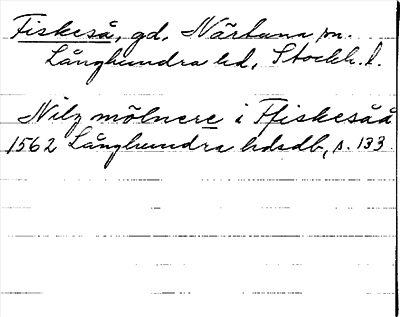 Fiskeså, gd, Närtuna sn.
Långhundra hd, Stockh. l.
Nilz mölnere i Ffiskesåå
1562 Långhundra hdsdb, s. 133.